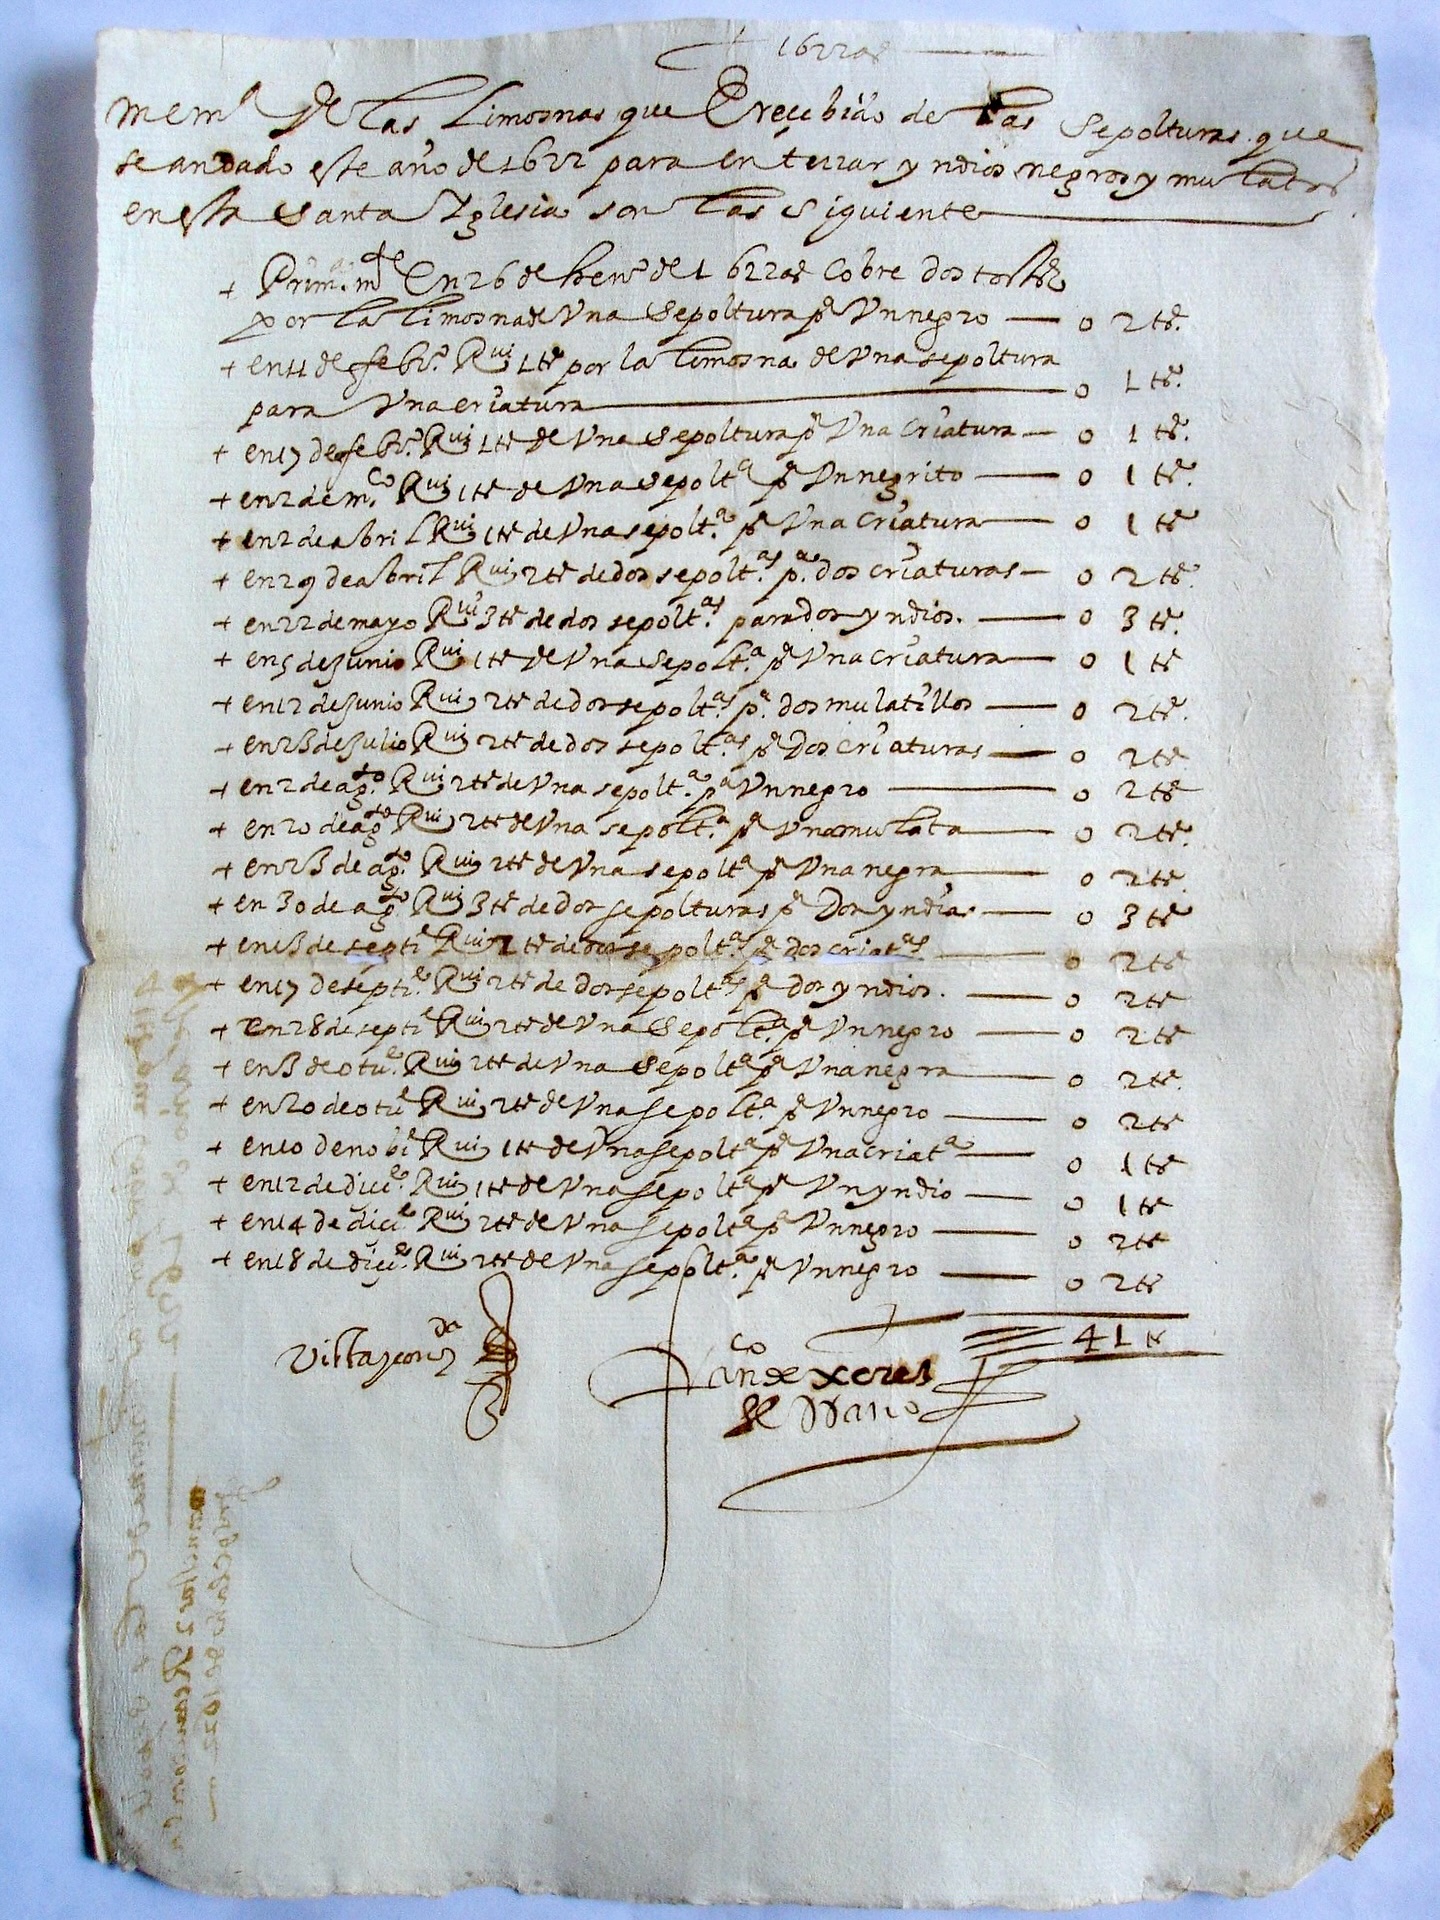 + 1622 as
Mem.ª De las Limosnas que E reçebido de las Sepolturas que
se an dado este año de 1622 para enterrar yndios negros y mulatos
en esta Santa Yglesia son las siguiente
+ Prim.a m.te En 26 de hen.o de 1622 as cobre dos tostes
por la limosna de Una Sepoltura p.a Un negro — 0 2 ts.
+ en 11 de febr.o R.ui 1 ts por la limosna de Una sepoltura
para Una criatura — 0 1 ts.
+ en 17 de febr.o R.ui 1 ts de Una Sepoltura p.a Una Criatura — 0 1 ts.
+ en 2 de m.ço R.ui 1 ts de Una sepolt.a p.a Un negrito — 0 1 ts.
+ en 2 de abril R.ui 1 ts de Una sepolt.a p.a Una Criatura — 0 1 ts
+ en 29 de abril R.ui 2 ts de dos sepolt.as p.a dos criaturas — 0 2 ts.
+ en 22 de mayo R.ui 3 ts de dos sepolt.as para dos yndios. — 0 3 ts.
+ en 5 de Junio R.ui 1 ts de Una Sepolt.a p.a Una criatura — 0 1 ts
+ en 12 de Junio R.ui 2 ts de dos sepolt.as p.a dos mulatillos — 0 2 ts.
+ en 23 de Julio R.ui 2 ts de dos sepolt.as p.a Dos criaturas — 0 2 ts
+ en 2 de ag.to R.ui 2 ts de Una sepolt.a p.a Un negro — 0 2 ts
+ en 20 de ag.to R.ui 2 ts de Una sepolt.a p.a Una mulata — 0 2 ts.
+ en 23 de ag.to R.ui 2 ts de Una sepolt.a p.a Una negra — 0 2 ts.
+ en 30 de ag.to R.ui 3 ts de dos sepolturas p.a Dos yndias — 0 3 ts
+ en 13 de septi.e R.ui 2 ts de dos sepolt.as p.a dos criat.as — 0 2 ts
+ en 17 de septi.e R.ui 2 ts de dos sepolt.as p.a dos yndios. — 0 2 ts
+ en 28 de septi.e R.ui 2 ts de Una Sepolt.a p.a Un negro — 0 2 ts
+ en 3 de otu.e R.ui 2 ts de Una Sepolt.a p.a Una negra — 0 2 ts.
+ en 20 de otu.e R.ui 2 ts de Una sepolt.a p.a Un negro — 0 2 ts
+ en 10 de nobi.e R.ui 1 ts de Una sepolt.a p.a Una criat.a — 0 1 ts
+ en 12 de dici.e R.ui 1 ts de Una sepolt.a p.a Un yndio — 0 1 ts
+ en 14 de dici.e R.ui 2 ts de Una sepolt.a p.a Un negro — 0 2 ts
+ en 18 de dici.e R.ui 2 ts de Una sepolt.a p.a Un negro — 0 2 ts
41 ts
fran.co de xeres